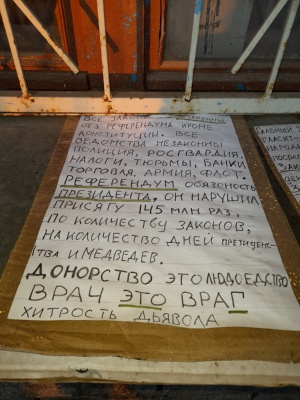 ВСЕ ЗАКОНЫ НЕЗАКОННЫ
БЕЗ РЕФЕРЕНДУМА КРОМЕ
КОНСТИТУЦИИ. ВСЕ
ВЕДОМСТВА НЕЗАКОННЫ
ПОЛИЦИЯ, РОСГВАРДИЯ,
НАЛОГИ, ТЮРЬМЫ, БАНКИ
ТОРГОВЛЯ, АРМИЯ, ФЛОТ.
РЕФЕРЕНДУМ ОБЯЗНОСТЬ
ПРЕЗИДЕНТА, ОН НАРУШИЛ
ПРИСЯГУ 145 МЛН РАЗ,
ПО КОЛИЧЕСТВУ ЗАКОНОВ,
НА КОЛИЧЕСТВО ДНЕЙ ПРЕЗИДЕНС-
ТВА И МЕДВЕДЕВ.
ДОНОРСТВО ЭТО ЛЮДОЕДСТВО
ВРАЧ ЭТО ВРАГ
ХИТРОСТЬ ДЬЯВОЛА